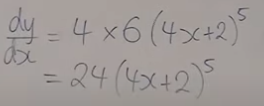 dy/dx = 4 × 6 (4x+2)^5
= 24 (4x+2)^5